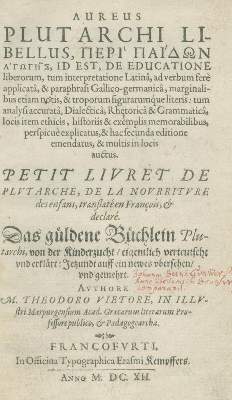 AUREUS
PLUTARCHI LI-
BELLUS, ΠΕΡΙ ΠΑΙΔΩΝ
ΑΓΩΓΗΣ, ID EST, DE EDUCATIONE
liberorum, tum interpretatione Latinâ, ad verbum ferè
applicatâ, & paraphrasi Gallico-germanicâ, marginali-
bus etiam notis, & troporum figurarumque literis: tum
analysi accuratâ, Dialecticâ, Rhetoricâ & Grammaticâ,
locis item ethicis, historiis & exemplis memorabilibus,
perspicuè explicatus, & hac secunda editione
emendatus, & multis in locis
auctus.
PETIT LIVRET DE
PLVTARCHE, DE LA NOVRRITVRE
des enfans, translaté en François, &
declaré.
Das güldene Büchlein Plu-
tarchi, von der Kinderzucht / eigentlich verteutscht
vnd erklärt: Jetzund auff ein newes vbersehen /
vnd gemehrt.
AVTHORE
M. THEODORO VIETORE, IN ILLV-
stri Marpurgensium Acad. Græcarum literarum Pro-
fessore publico, & Pædagogearcha.
FRANCOFVRTI,
In Officina Typographica Erasmi Kempffers.
ANNO M. DC. XII.